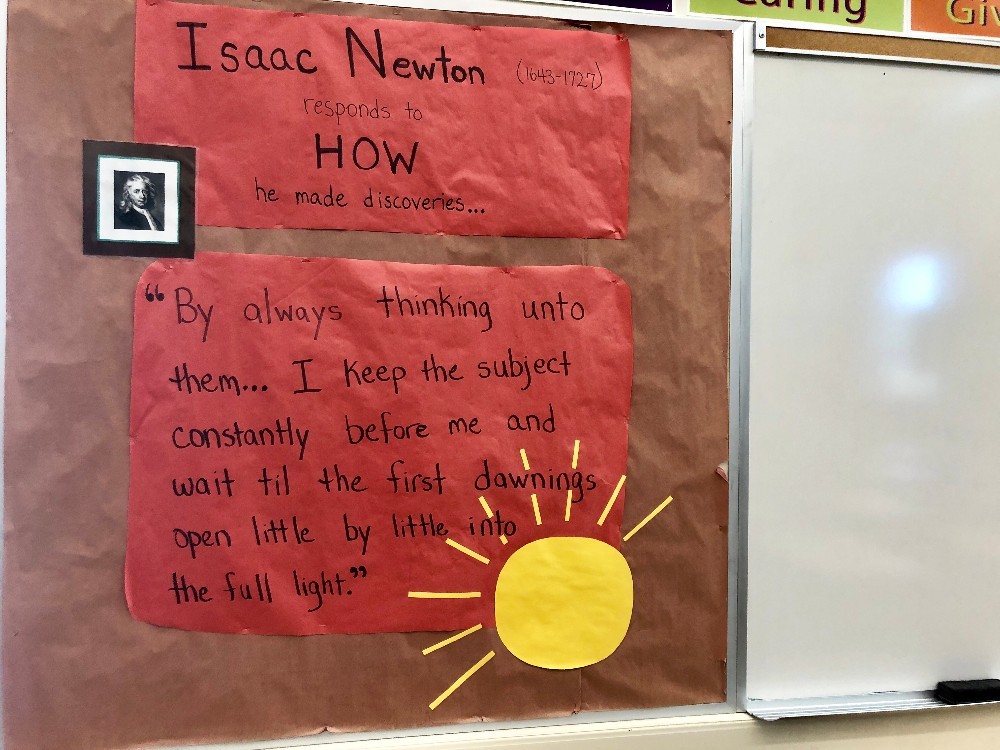 Caring
Giv
Isaac Newton (1643-1727)
responds to
HOW
he made discoveries...
“By always thinking unto
them... I keep the subject
constantly before me and
wait til the first dawnings
open little by little into
the full light.”